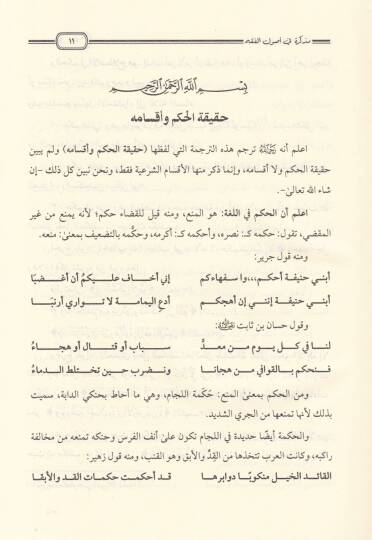 مذكرة في أصول الفقه
١١
بِسْمِ اللَّهِ الرَّحْمَنِ الرَّحِيمِ
حقيقة الحكم وأقسامه
اعلم أنه ﵀ ترجم هذه الترجمة التي لفظها (حقيقة الحكم وأقسامه) ولم يبين
حقيقة الحكم ولا أقسامه، وإنما ذكر منها الأقسام الشرعية فقط، ونحن نبين كل ذلك -إن
شاء الله تعالى-.
اعلم أن الحكم في اللغة: هو المنع، ومنه قيل للقضاء حكم؛ لأنه يمنع من غير
المقضي، تقول: حكمه كـ: نصره، وأحكمه كـ: أكرمه، وحكَّمه بالتضعيف بمعنى: منعه.
ومنه قول جرير:
أبني حنيفة أحكمـ...ـوا سفهاءكم إني أخاف عليكمُ أن أغضبًا
أبني حنيفة إنني إن أهجكم أدع اليمامة لا تواري أرنبًا
وقول حسان بن ثابت ﵁:
لنا في كل يوم من معدٍّ سباب أو قتال أو هجاءُ
فنحكم بالقوافي من هجانا ونضرب حين تختلط الدماءُ
ومن الحكم بمعنى المنع: حَكَمة اللجام، وهي ما أحاط بحنكي الدابة، سميت
بذلك لأنها تمنعها من الجري الشديد.
والحكمة أيضًا حديدة في اللجام تكون على أنف الفرس وحنكه تمنعه من مخالفة
راكبه، وكانت العرب تتخذها من القِدِّ والأبق وهو القنب، ومنه قول زهير:
القائد الخيل منكوبًا دوابرها قد أحكمت حكمات القد والأبقا